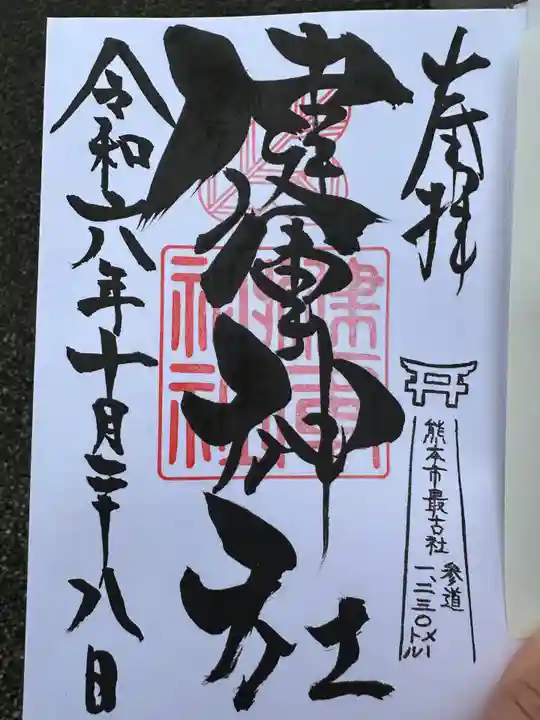 奉拝
熊本市最古社
参道
一、二三〇メートル
健軍神社
令和六年十月二十八日